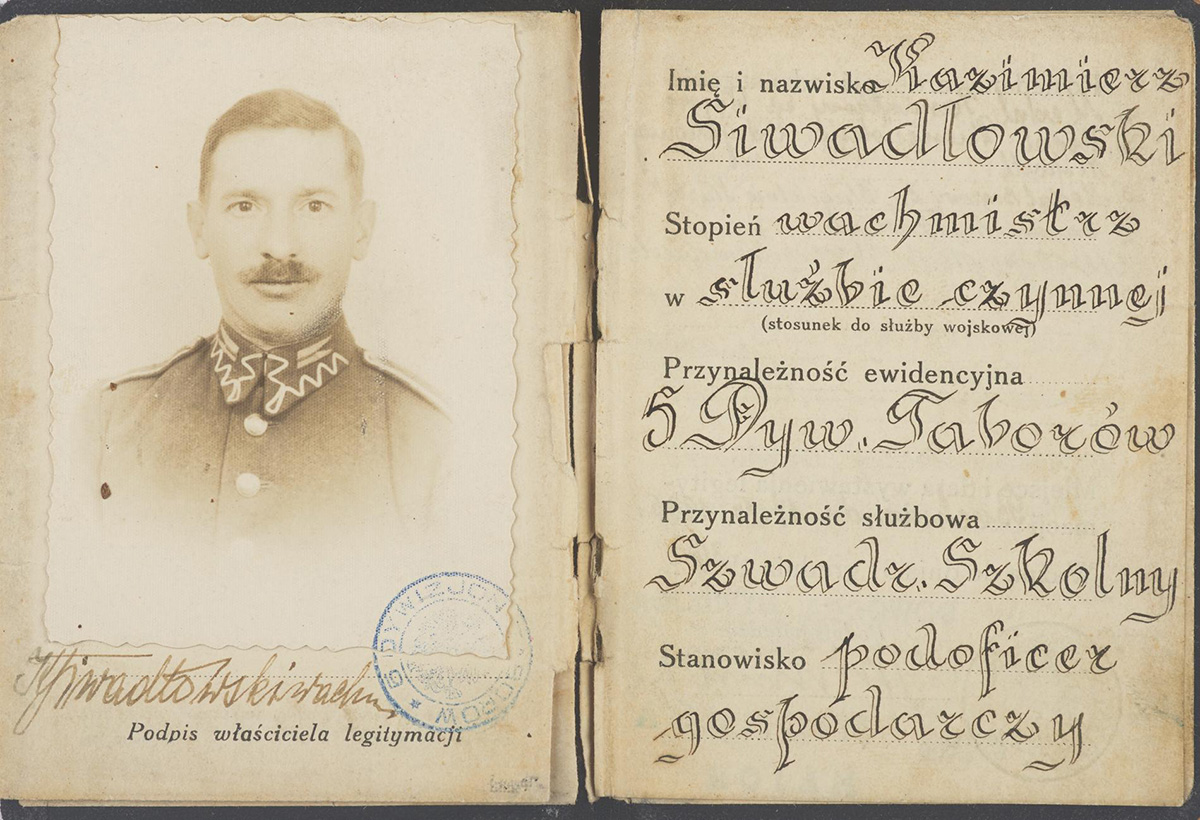 KSiwadłowski wachm.
Podpis właściciela legitymacji
DYWIZJON
Imię i nazwisko Kazimierz
Siwadłowski
Stopień wachmistrz
w służbie czynnej
(stosunek do służby wojskowej)
Przynależność ewidencyjna
5 Dyw. Taborów
Przynależność służbowa
Szwadr. Szkolny
Stanowisko podoficer
gospodarczy